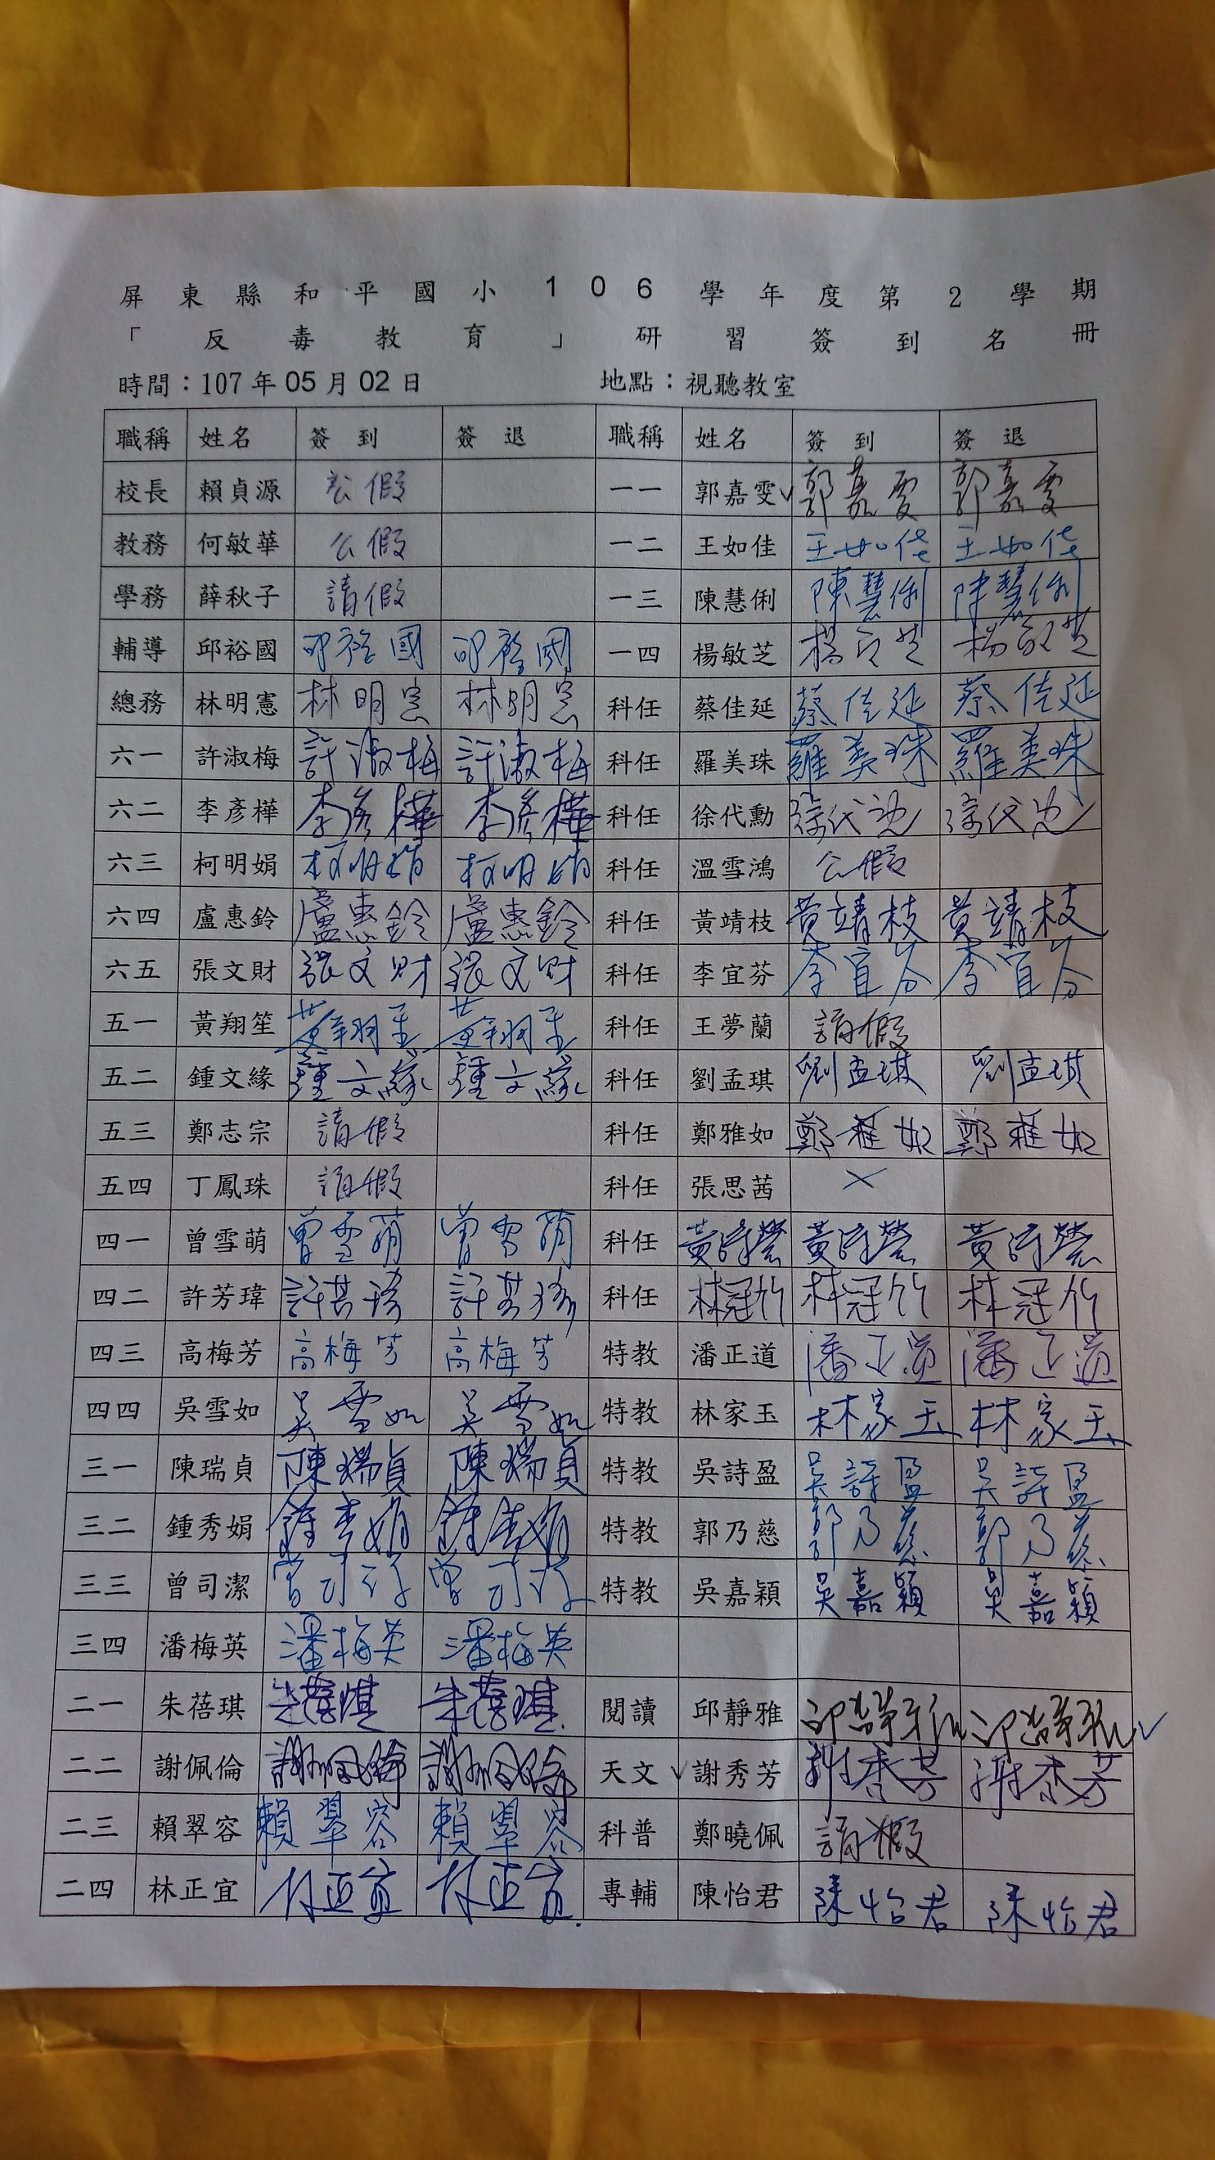 屏東縣和平國小106學年度第2學期
「反毒教育」研習簽到名冊
時間：107年05月02日 地點：視聽教室
職稱 姓名 簽到 簽退 職稱 姓名 簽到 簽退
校長 賴貞源 公假 一一 郭嘉雯 郭嘉雯 郭嘉雯
教務 何敏華 公假 一二 王如佳 王如佳 王如佳
學務 薛秋子 請假 一三 陳慧俐 陳慧俐 陳慧俐
輔導 邱裕國 邱裕國 邱裕國 一四 楊敏芝 楊敏芝 楊敏芝
總務 林明憲 林明憲 林明憲 科任 蔡佳延 蔡佳延 蔡佳延
六一 許淑梅 許淑梅 許淑梅 科任 羅美珠 羅美珠 羅美珠
六二 李彥樺 李彥樺 李彥樺 科任 徐代勳 徐代勳 徐代勳
六三 柯明娟 柯明娟 柯明娟 科任 溫雪鴻 公假
六四 盧惠鈴 盧惠鈴 盧惠鈴 科任 黃靖枝 黃靖枝 黃靖枝
六五 張文財 張文財 張文財 科任 李宜芬 李宜芬 李宜芬
五一 黃翔笙 黃翔笙 黃翔笙 科任 王夢蘭 請假
五二 鍾文緣 鍾文緣 鍾文緣 科任 劉孟琪 劉孟琪 劉孟琪
五三 鄭志宗 請假 科任 鄭雅如 鄭雅如 鄭雅如
五四 丁鳳珠 請假 科任 張思茜
四一 曾雪萌 曾雪萌 曾雪萌 科任
四二 許芳瑋 許芳瑋 許芳瑋 科任 林冠竹 林冠竹 林冠竹
四三 高梅芳 高梅芳 高梅芳 特教 潘正道 潘正道 潘正道
四四 吳雪如 吳雪如 吳雪如 特教 林家玉 林家玉 林家玉
三一 陳瑞貞 陳瑞貞 陳瑞貞 特教 吳詩盈 吳詩盈 吳詩盈
三二 鍾秀娟 鍾秀娟 鍾秀娟 特教 郭乃慈 郭乃慈 郭乃慈
三三 曾司潔 曾司潔 曾司潔 特教 吳嘉穎 吳嘉穎 吳嘉穎
三四 潘梅英 潘梅英 潘梅英
二一 朱蓓琪 朱蓓琪 朱蓓琪 閱讀 邱靜雅 邱靜雅 邱靜雅
二二 謝佩倫 謝佩倫 謝佩倫 天文 謝秀芳 謝秀芳 謝秀芳
二三 賴翠容 賴翠容 賴翠容 科普 鄭曉佩 請假
二四 林正宜 林正宜 林正宜 專輔 陳怡君 陳怡君 陳怡君